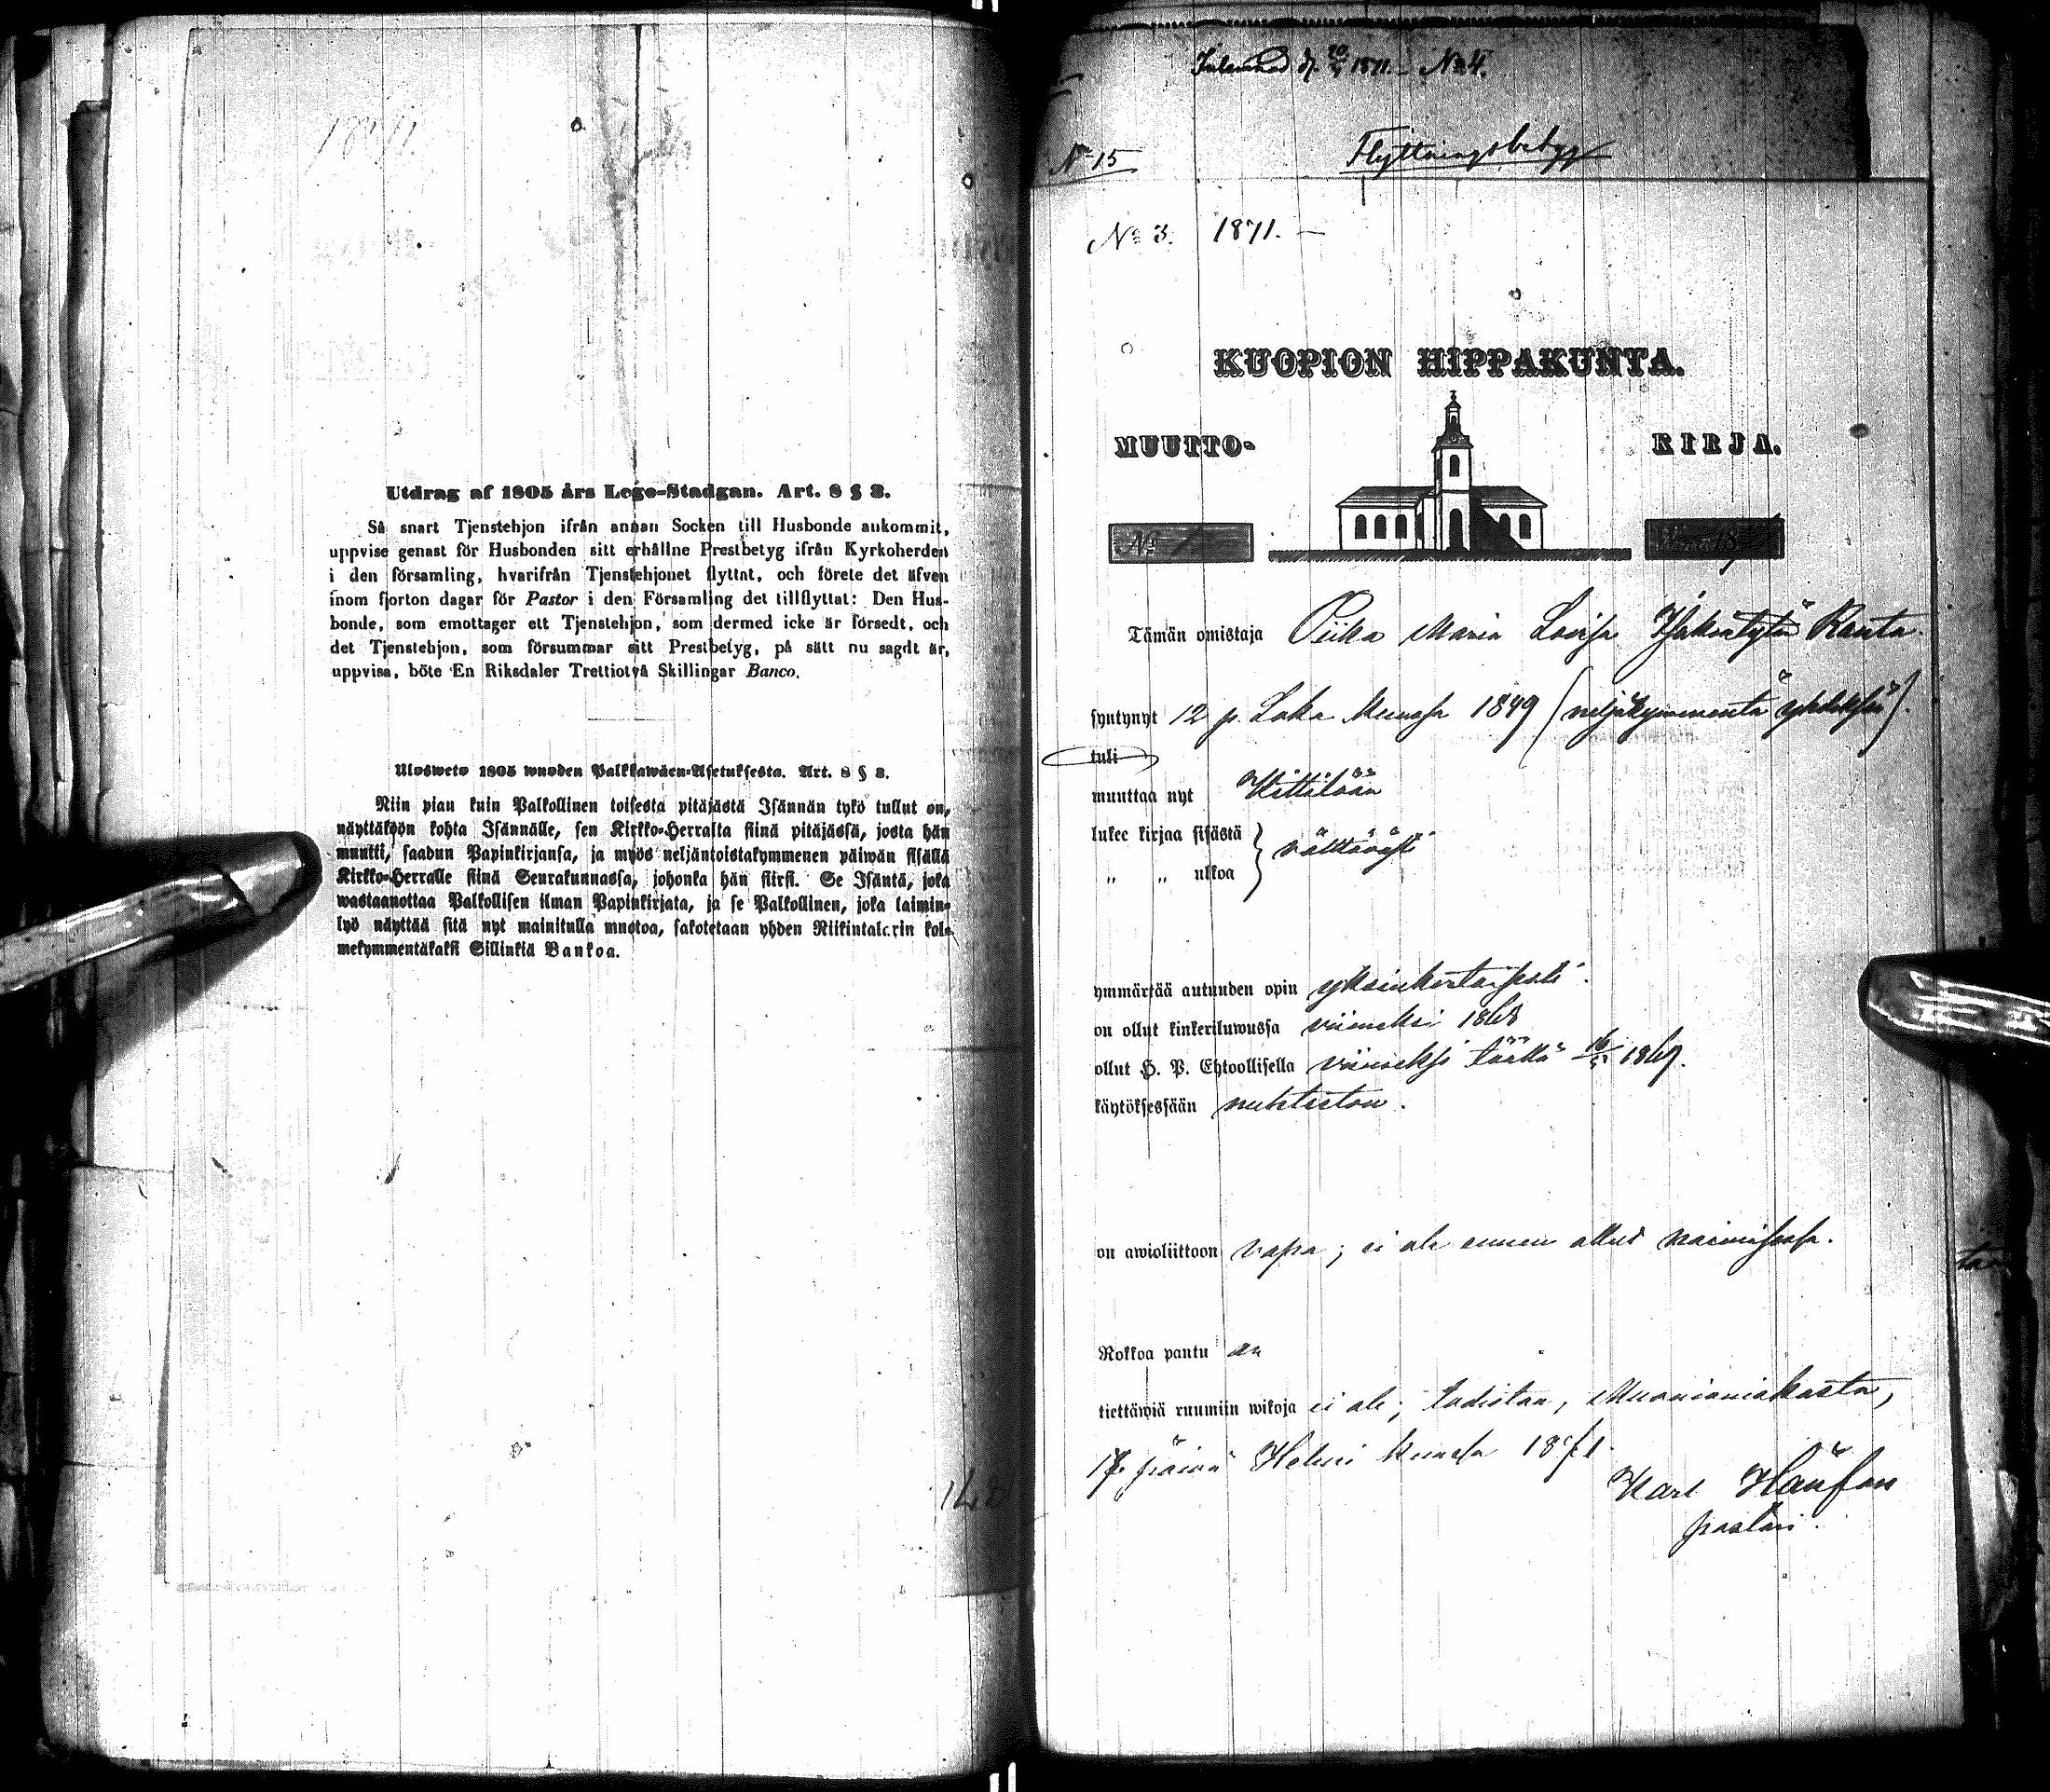 1871.
Utdrag af 1805 års Lego-Stadgan. Art. 8 § 3.
Så snart Tjenstehjon ifrån annan Socken till Husbonde ankommit,
uppvise genast för Husbonden sitt erhållne Prestbetyg ifrån Kyrkoherden
i den församling, hvarifrån Tjenstehjonet flyttat, och förete det äfven
inom fjorton dagar för Pastor i den Församling det tillflyttat: Den Hus-
bonde, som emottager ett Tjenstehjon, som dermed icke är försedt, och
det Tjenstehjon, som försummar sitt Prestbetyg, på sätt nu sagdt är,
uppvisa, böte En Riksdaler Trettiotvå Skillingar Banco.
Ulosweto 1805 wuoden Palkkawäen-Asetuksesta. Art. 8 § 3.
Niin pian kuin Palkollinen toisesta pitäjästä Isännän tykö tullut on,
näyttäköön kohta Isännälle, sen Kirkko-Herralta siinä pitäjässä, josta hän
muutti, saadun Papinkirjansa, ja myös neljäntoistakymmenen päiwän sisällä
Kirkko-Herralle siinä Seurakunnassa, johonka hän siirsi. Se Isäntä, joka
wastaanottaa Palkollisen ilman Papinkirjata, ja se Palkollinen, joka laimin-
lyö näyttää sitä nyt mainitulla muotoa, sakotetaan yhden Riikintalarin kol-
mekymmentäkaksi Sillinkiä Bankoa.
Inlemnad d. 1871. No 4.
No 15 Flyttningsbetyg
No 3. 1871. —
KUOPION HIPPAKUNTA.
MUUTTO- KIRJA.
No 18
Tämän omistaja Piika Maria Lovisa Isakintytär Ranta.
syntynyt 12 p. Loka Kuussa 1849 (neljäkymmentä yhdeksän).
tuli
muuttaa nyt Kittilään
lukee kirjaa sisästä } välttävästi
„ „ ulkoa
ymmärtää autuuden opin yksinkertaisesti.
on ollut kinkeriluwussa viimeksi 1868
ollut H. P. Ehtoollisella viimeksi täällä 1869.
käytöksessään nuhteeton.
on awioliittoon vapa; ei ole ennen ollut naimisissa.
Rokkoa pantu on
tiettäwiä ruumiin wikoja ei ole; todistaa, Muonioniskasta,
päivä Helmi kuussa 1871.
Karl
pastori.